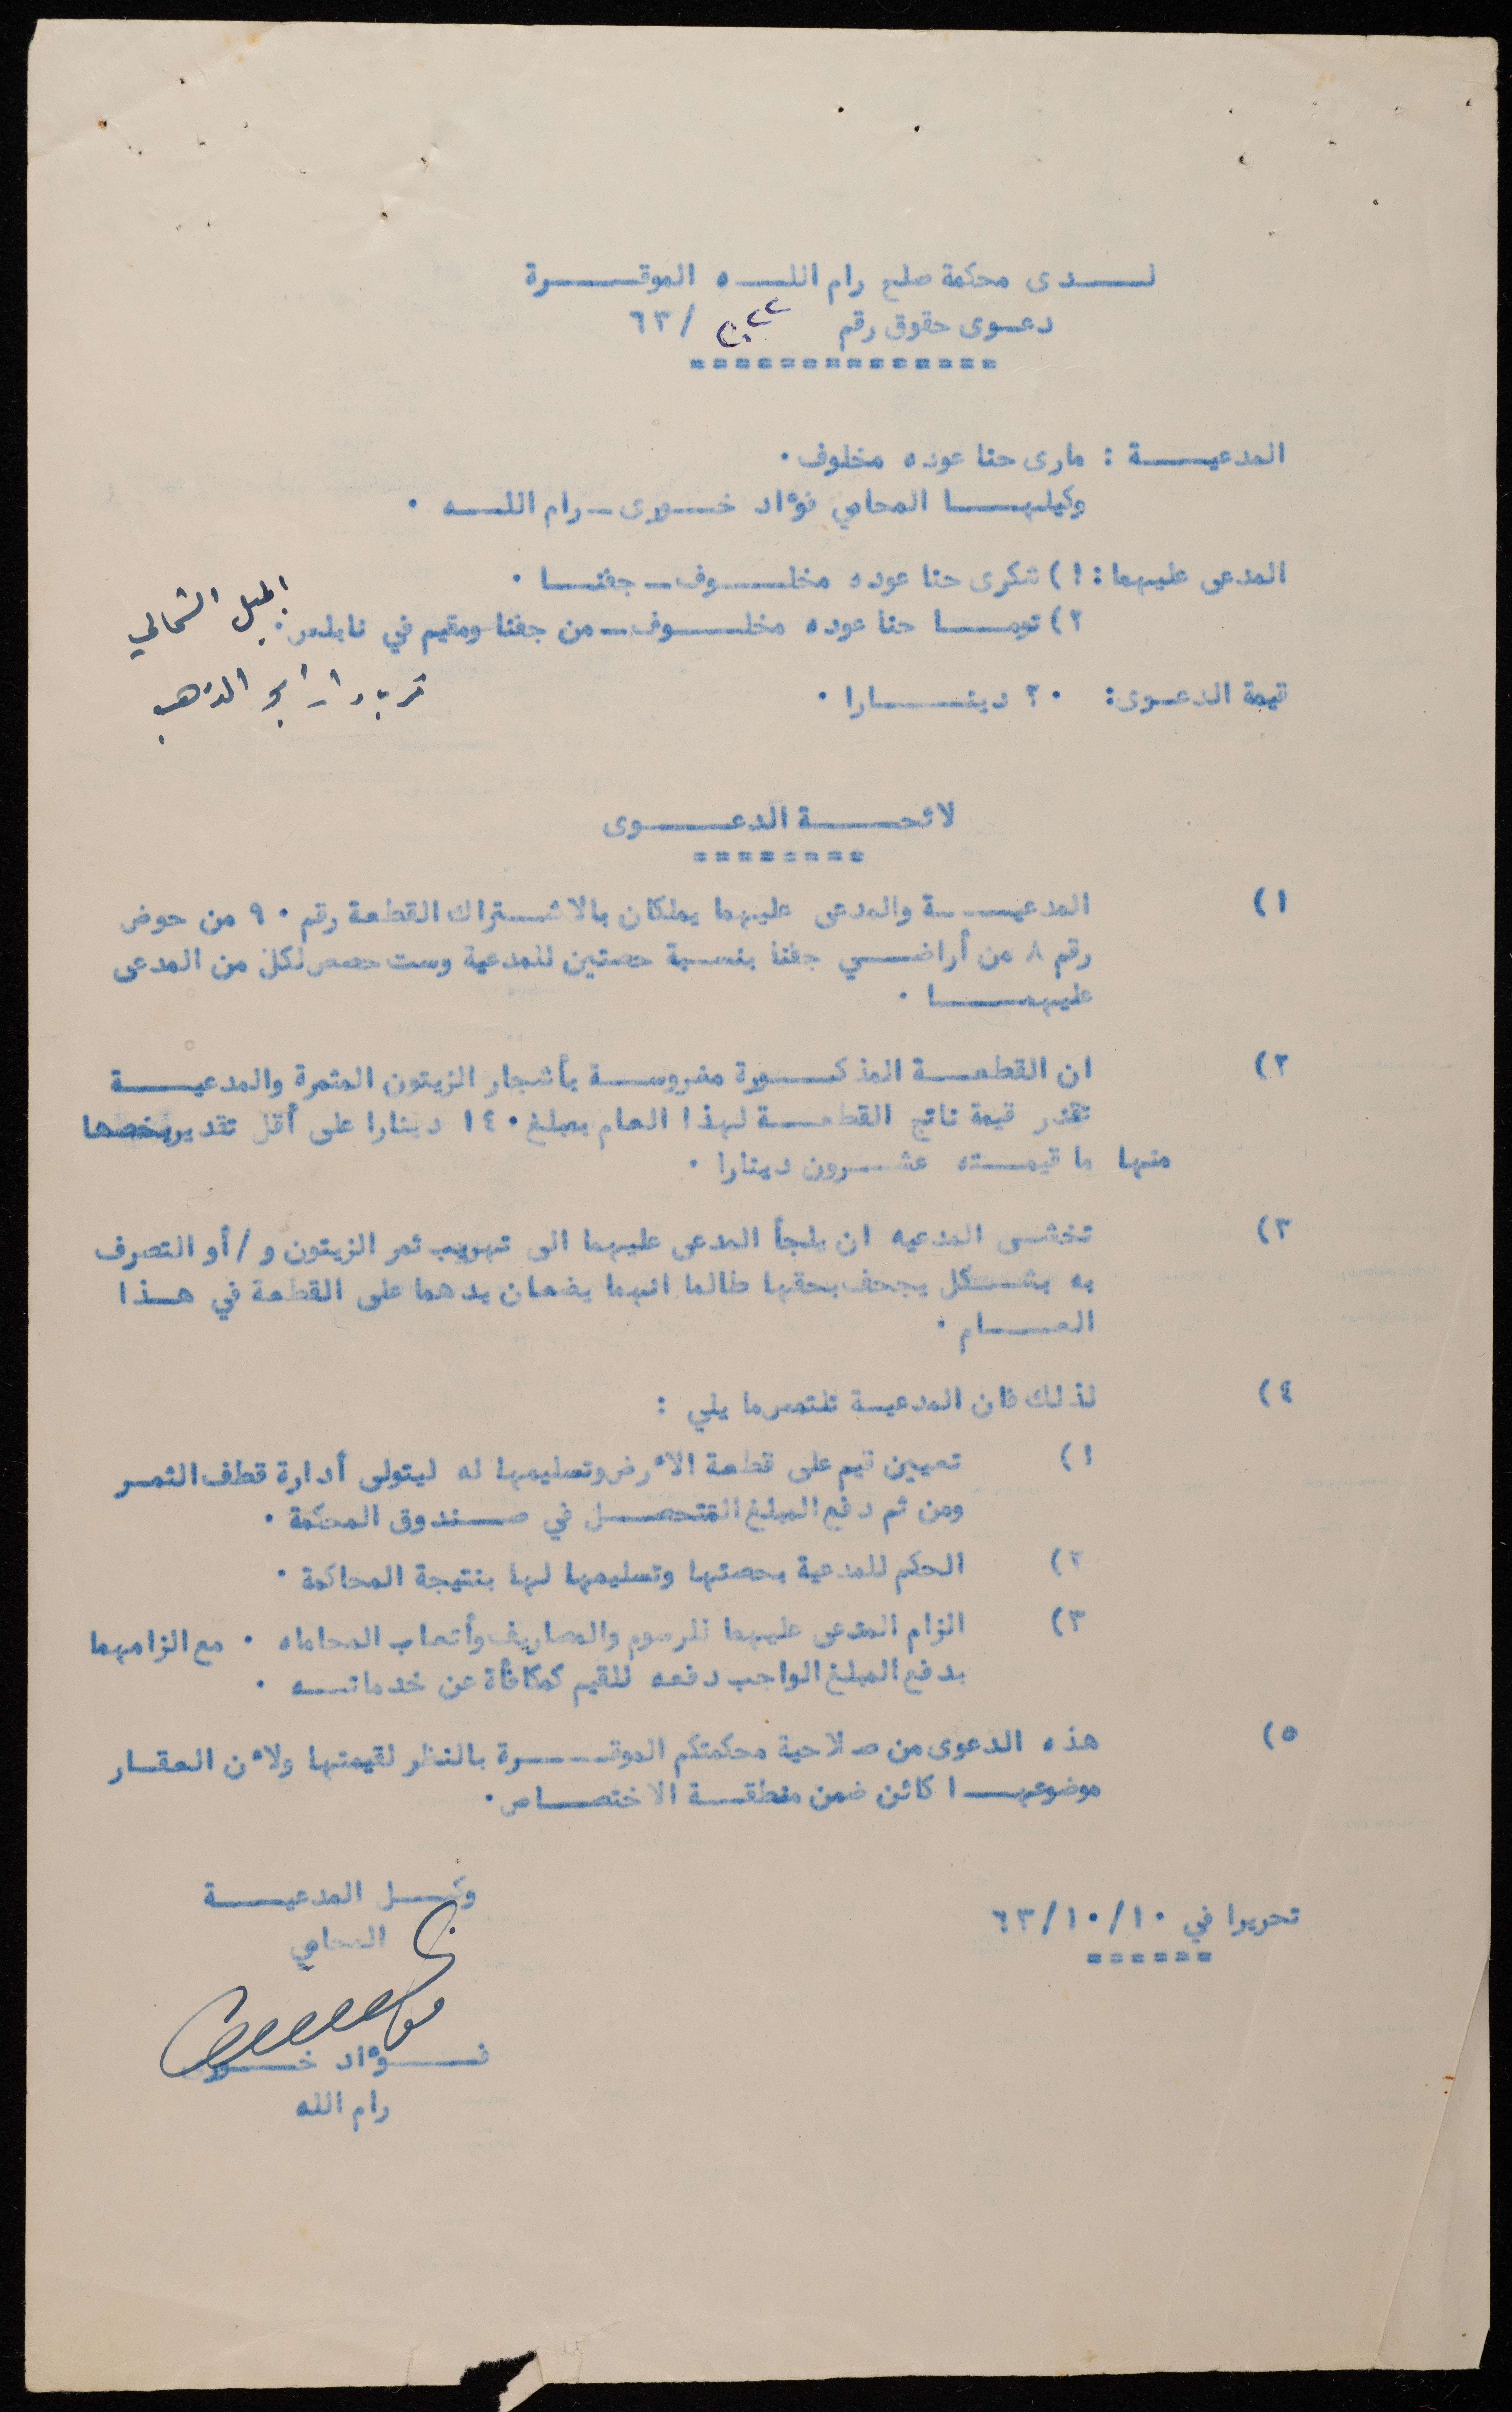 لدى محكمة صلح رام الله الموقرة
دعوى حقوق رقم /٦٣
===============
المدعية : مارى حنا عوده مخلوف .
وكيلها المحامي فؤاد خورى - رام الله .
المدعى عليهما : ١) شكرى حنا عوده مخلوف - جفنا .
٢) توما حنا عوده مخلوف - من جفنا ومقيم في نابلس . الجبل الشمالي
قرب دار ابو الذهب
قيمة الدعوى : ٢٠ دينارا .
لائحة الدعوى
========
١) المدعية والمدعى عليهما يملكان بالاشتراك القطعة رقم ٩٠ من حوض
رقم ٨ من أراضي جفنا بنسبة حصتين للمدعية وست حصص لكل من المدعى
عليهما .
٢) ان القطعة المذكورة مغروسة بأشجار الزيتون المثمرة والمدعية
تقدر قيمة ناتج القطعة لهذا العام بمبلغ ١٤٠ دينارا على أقل تقدير يخصها
منها ما قيمته عشرون دينارا .
٣) تخشى المدعيه ان يلجأ المدعى عليهما الى تهريب ثمر الزيتون و/أو التصرف
به بشكل يجحف بحقها طالما انهما يضعان يدهما على القطعة في هذا
العام .
٤) لذلك فان المدعية تلتمس ما يلي :
١) تعيين قيم على قطعة الأرض وتسليمها له ليتولى أدارة قطف الثمر
ومن ثم دفع المبلغ المتحصل في صندوق المحكمة .
٢) الحكم للمدعية بحصتها وتسليمها لها بنتيجة المحاكمة .
٣) الزام المدعى عليهما للرسوم والمصاريف وأتعاب المحاماه . مع الزامهما
بدفع المبلغ الواجب دفعه للقيم كمكافأة عن خدماته .
٥) هذه الدعوى من صلاحية محكمتكم الموقرة بالنظر لقيمتها ولأن العقار
موضوعها كائن ضمن منطقة الاختصاص .
تحريرا في ٦٣/١٠/١٠
======
وكيل المدعية
المحامي
فؤاد خورى
رام الله